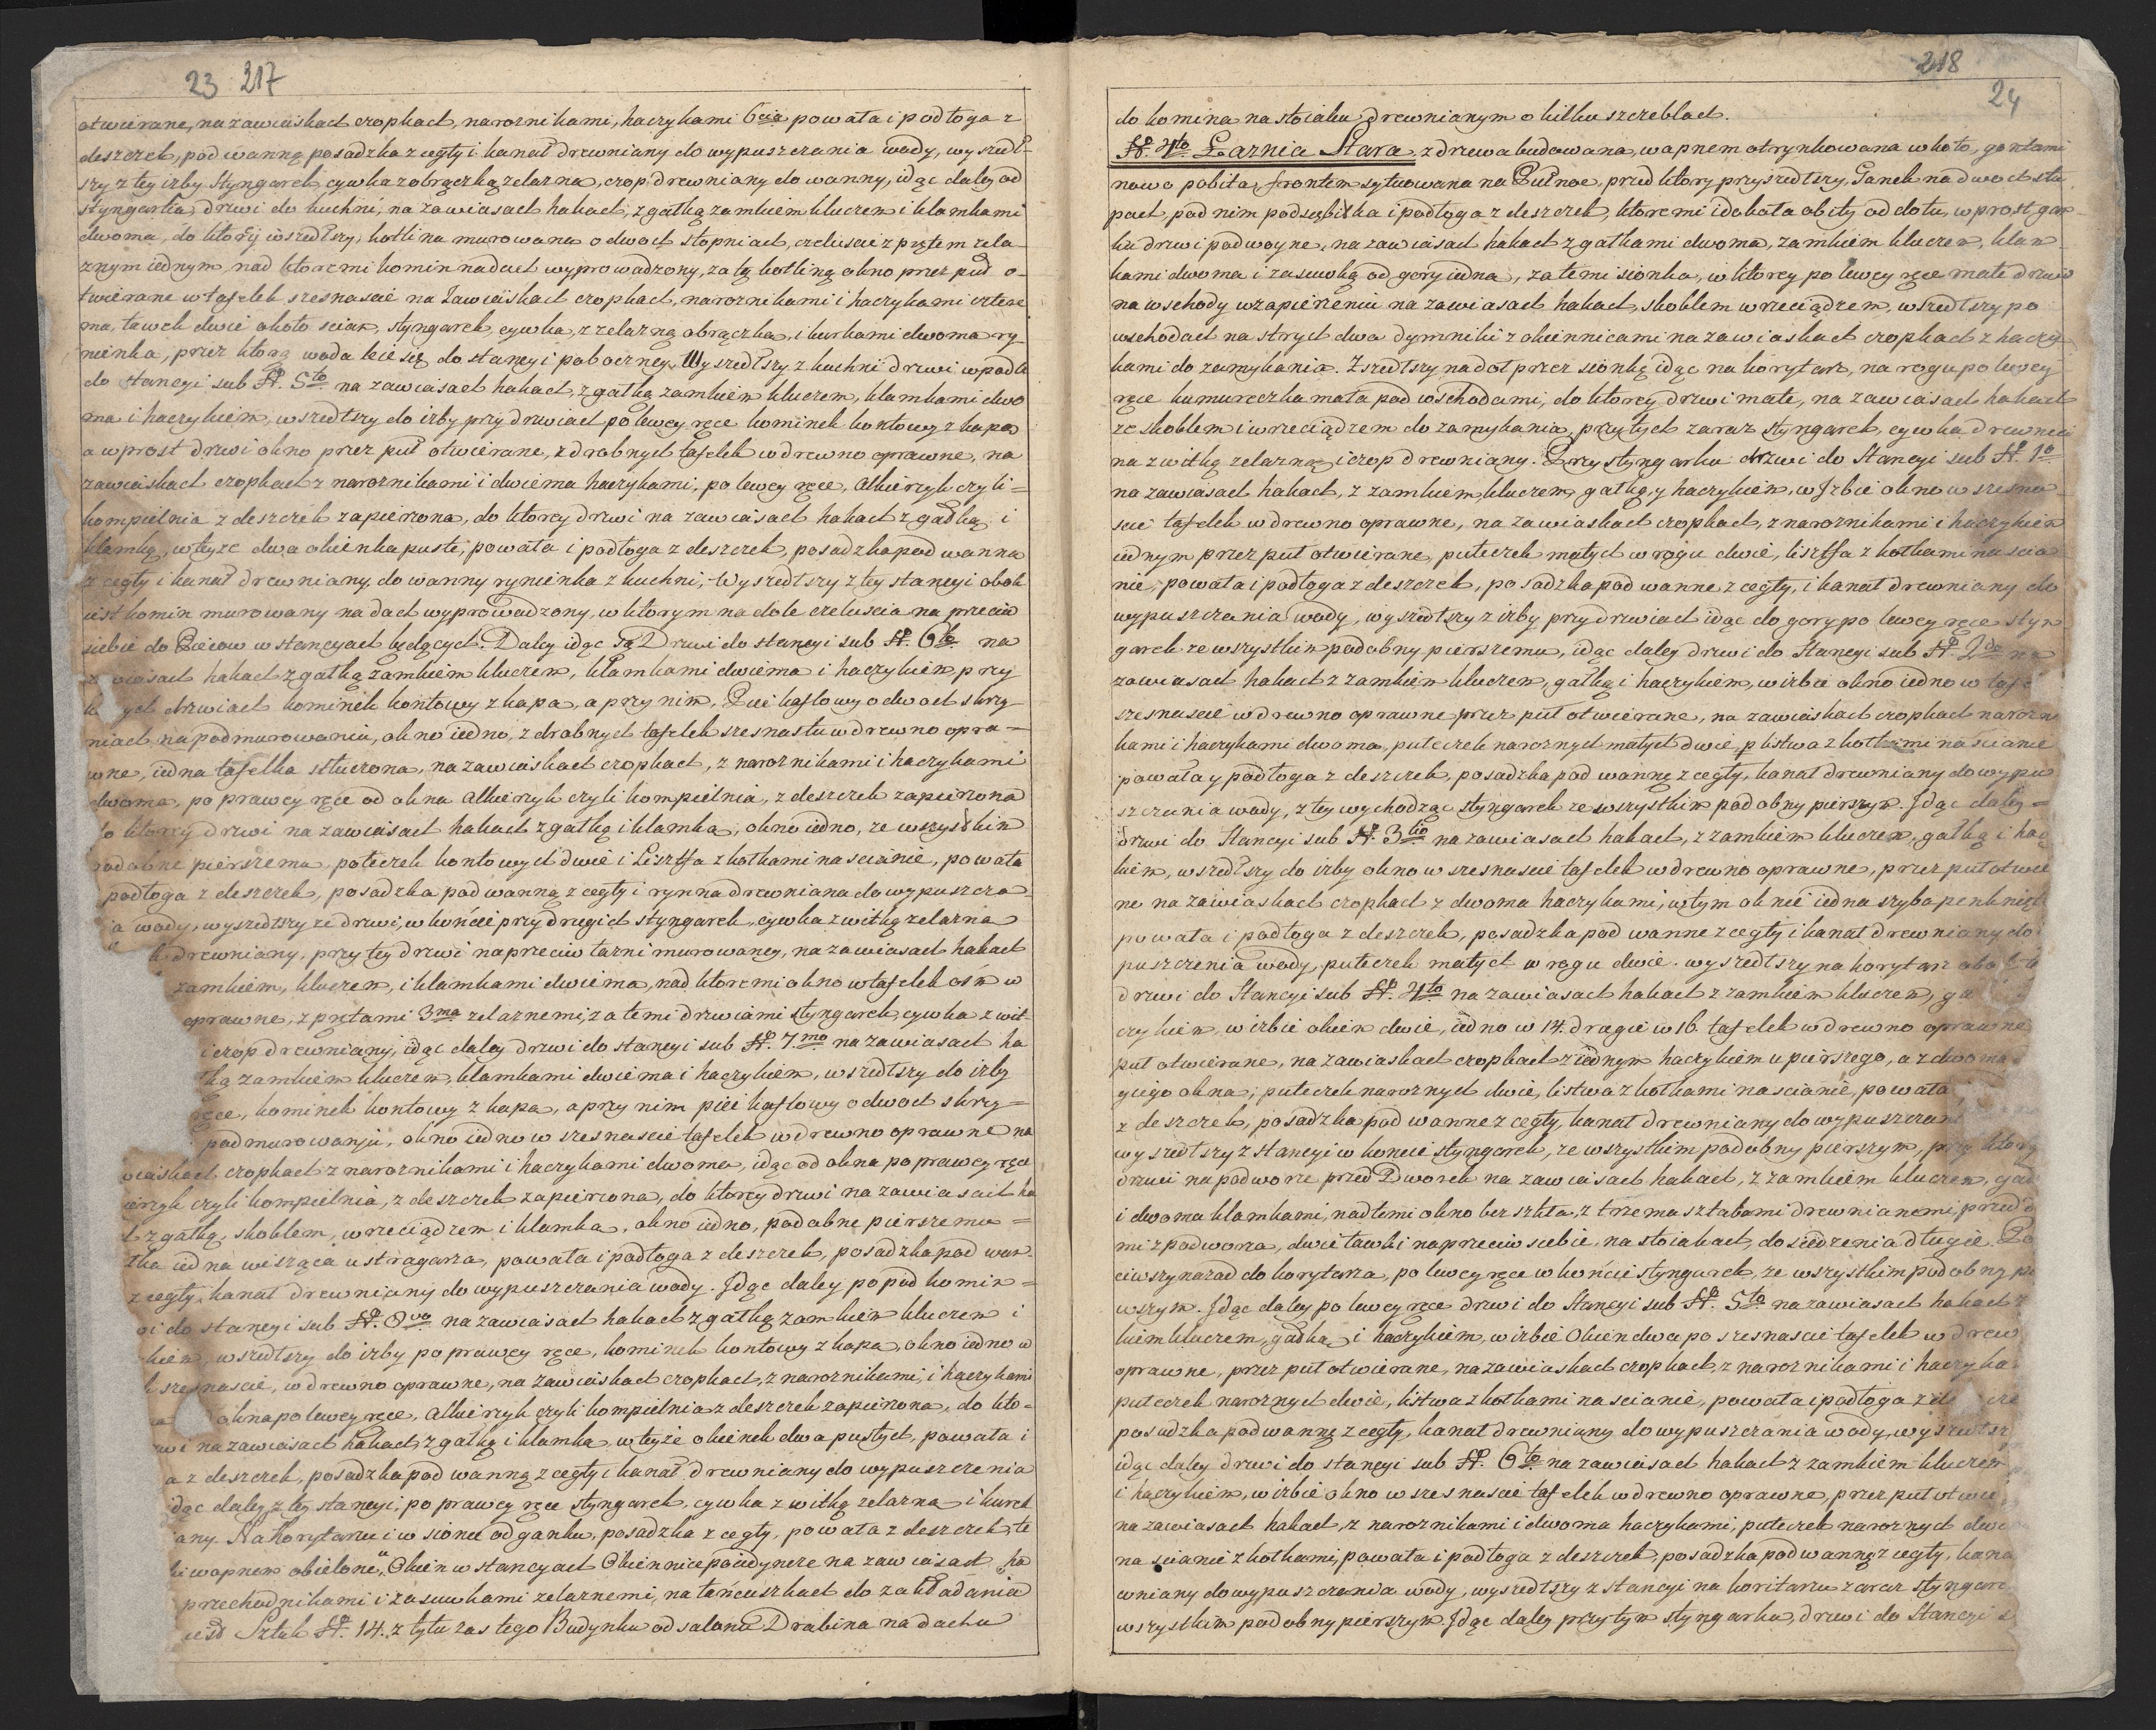 23 217
otwierane, na zawiaskach czopkach, narożnikami, haczykami 6cią powała i podłoga z
deszczek, pod wanną posadzka z cegły i kanał drewniany do wypuszczania wody, wyszedł-
szy z tey izby Styngarek, cywka z obrączką żelazna, czop drewniany do wanny, idąc daley od
styngarka, drzwi do kuchni, na zawiasach hakach, z gałką zamkiem kluczem i klamkami
dwoma, do którey wszedłszy, kotlina murowana o dwoch stopniach, czeluscie z prętem żela-
znym iednym, nad któremi komin na dach wyprowadzony, za tą kotliną okno przez puł o-
twierane w tafelek szesnascie na zawiaskach czopkach, narożnikami i haczykami cztere
ma, ławek dwie około scian, styngarek, cywka, z żelazną obrączką, i kurkami dwoma ry-
nienka, przez którą woda leie się do stancyi poboczney. Wyszedłszy z kuchni drzwi wpodle
do stancyi sub N. 5to na zawiasach hakach, z gałką zamkiem kluczem, klamkami dwo
ma i haczykiem, wszedłszy do izby przy drzwiach po lewey ręce kominek kontowy z kapą
a wprost drzwi okno przez puł otwierane, z drobnych tafelek w drewno oprawne, na
zawiaskach czopkach z narożnikami i dwiema haczykami, po lewey ręce, Alkierzyk czyli =
kompielnia z deszczek zapierzona, do którey drzwi na zawiasach hakach z gałką i
klamką, w teyże dwa okienka puste, powała i podłoga z deszczek, posadzka pod wanną
z cegły i kanał drewniany, do wanny rynienka z kuchni, Wyszedłszy z tey stancyi obok
iest komin murowany na dach wyprowadzony, w którym na dole czeluscia na przeciw
siebie do Pieców w stancyach będących. Daley idąc są Drzwi do stancyi sub N. 6to na
wiasach hakach z gałką zamkiem kluczem, klamkami dwiema i haczykiem przy
ych drzwiach kominek kontowy z kapą, a przy nim, Piec kaflowy o dwoch skrzy-
niach na podmurowaniu, okno iedno, z drobnych tafelek szesnastu w drewno opra =
wne, iedna tafelka stłuczona, na zawiaskach czopkach, z narożnikami i haczykami
dwoma, po prawey ręce od okna Alkierzyk czyli kompielnia, z deszczek zapierzona
o którey drzwi na zawiasach hakach z gałką i klamką, okno iedno, ze wszystkim
podobne pierszemu, poteczek kontowych dwie i Lisztfa z kołkami na scianie, powała
podłoga z deszczek, posadzka pod wanną z cegły i rynna drewniana do wypuszcza
ia wody, wyszedłszy ze drzwi, w końcie przy drugich styngarek, cywka z witką żelazna
k drewniany, przy tey drzwi naprzeciw łazni murowaney, na zawiasach hakach
zamkiem, kluczem, i klamkami dwiema, nad któremi okno w tafelek ośm w
oprawne, z prętami 3ma żelaznemi, za temi drzwiami styngarek, cywka z wit-
i czop drewniany, idąc daley drzwi do stancyi sub N. 7mo na zawiasach ha
łką zamkiem kluczem, klamkami dwiema i haczykiem, wszedłszy do izby
ręce, kominek kontowy z kapą, a przy nim piec kaflowy o dwoch skrzy=
podmurowaniu, okno iedno w szesnascie tafelek w drewno oprawne na
wiaskach czopkach z narożnikami i haczykami dwoma, idąc od okna po prawey ręce
ierzyk czyli kompielnia, z deszczek zapierzona, do którey drzwi na zawiasach ha
h z gałką, skoblem, wrzeciądzem i klamką, okno iedno, podobne pierszemu =
łka iedna wisząca u stragarza, powała i podłoga z deszczek, posadzka pod wan-
z cegły, kanał drewniany do wypuszczania wody. Idąc daley popod komin =
wi do stancyi sub N. 8vo na zawiasach hakach z gałką zamkiem kluczem i
kiem, wszedłszy do izby po prawey ręce, kominek kontowy z kapą, okno iedno w
k szesnascie, w drewno oprawne, na zawiaskach czopkach, z narożnikami, i haczykami
okna po lewey ręce, Alkierzyk czyli kompielnia z deszczek zapierzona, do któ-
rzwi na zawiasach hakach, z gałką i klamką, w teyże okienek dwa pustych, powała i
a z deszczek, posadzka pod wanną z cegły i kanał drewniany do wypuszczenia
idąc daley z tey stancyi, po prawey ręce styngarek, cywka z witką żelazna i kurek
any. Na Korytarzu i w sionce od ganku, posadzka z cegły, powała z deszczek, te
ki wapnem obielone, Okien w stancyach Okiennice poiedyncze na zawiasach ha
przechodnikami i zasuwkami żelaznemi, na łańcuszkach do zakładania
iest Sztuk N. 14. z tyłu zas tego Budynku od salonu Drabina na dachu
218
24
do komina na stoiaku drewnianym o kilku szczeblach.
N. 4to Łaznia Stara, z drzewa budowana, wapnem otrynkowana w koło, gontami
nowo pobita, frontem sytuowana na Pułnoc, przed który przyszedłszy, Ganek na dwoch słu
pach, pod nim podsębitka i podłoga z deszczek, któremi i dokoła obity od dołu, wprost gan-
ku drzwi podwoyne, na zawiasach hakach z gałkami dwoma, zamkiem kluczem, klam
kami dwoma i zasuwką od gory iedna, za temi sionka, w którey po lewey ręce małe drzwi
na wschody w zapierzeniu na zawiasach hakach, skoblem wrzeciądzem, wszedłszy po
wschodach na strych dwa dymniki z okiennicami na zawiaskach czopkach z haczy
kami do zamykania. Zszedłszy na doł przez sionkę idąc na korytarz, na rogu po lewey
ręce kumureczka mała pod wschodami, do którey drzwi małe, na zawiasach hakach
ze skoblem i wrzeciądzem do zamykania, przy tych zaraz styngarek, cywka drewnia
na z witką żelazną i czop drewniany. Przy styngarku drzwi do Stancyi sub N. 1o
na zawiasach hakach, z zamkiem kluczem, gałką, y haczykiem, w Izbie okno w szesna
scie tafelek w drewno oprawne, na zawiaskach czopkach, z narożnikami i haczykiem
iednym przez puł otwierane, puteczek małych w rogu dwie, lisztfa z kołkami na scia
nie, powała i podłoga z deszczek, posadzka pod wanne z cegły, i kanał drewniany do
wypuszczania wody, wyszedłszy z izby przy drzwiach idąc do gory po lewey ręce styn
garek ze wszystkim podobny pierszemu, idąc daley drzwi do Stancyi sub N. 2do na
zawiasach hakach z zamkiem kluczem, gałką i haczykiem, w izbie okno iedno w tafe
szesnascie w drewno oprawne przez puł otwierane, na zawiaskach czopkach narożni
kami i haczykami dwoma, puteczek narożnych małych dwie, listwa z kołkami na scianie
powała y podłoga z deszczek, posadzka pod wannę z cegły, kanał drewniany do wypu
szczania wody, z tey wychodząc styngarek ze wszystkim podobny pierszym. Idąc daley =
drzwi do Stancyi sub N. 3tio na zawiasach hakach, z zamkiem kluczem, gałką i haczy
kiem, wszedłszy do izby okno w szesnascie tafelek w drewno oprawne, przez puł otwie
ne na zawiaskach czopkach z dwoma haczykami, w tym oknie iedna szyba pęknięta
powała i podłoga z deszczek, posadzka pod wanne z cegły i kanał drewniany do
puszczenia wody, puteczek małych w rogu dwie. wyszedłszy na korytarz obok te
drzwi do Stancyi sub N. 4to na zawiasach hakach z zamkiem kluczem, ga
czykiem, w izbie okien dwie, iedno w 14. drugie w 16. tafelek w drewno oprawne
puł otwierane, na zawiaskach czopkach z iednym haczykiem u pierszego, a z dwoma
giego okna, puteczek narożnych dwie, listwa z kołkami na scianie, powała
z deszczek, posadzka pod wanne z cegły, kanał drewniany do wypuszczani
wyszedłszy z stancyi w końcie styngarek, ze wszystkim podobny pierszym, przy który
drzwi na podworze przed Dworek na zawiasach hakach, z zamkiem kluczem, gał
i dwoma klamkami, nad temi okno bez szkła, z trzema sztabami drewnianemi, przed d
mi z podworza, dwie ławki naprzeciw siebie, na stoiakach, do siedzenia długie. Po
ciwszy nazad do korytarza, po lewey ręce w końcie styngarek, ze wszystkim podobny pi
wszym. Idąc daley po lewey ręce drzwi do Stancyi sub N. 5to na zawiasach hakach z
kiem kluczem, gałką i haczykiem, w izbie Okien dwa po szesnascie tafelek w drew
oprawne, przez puł otwierane, na zawiaskach czopkach, z narożnikami i haczyka
puteczek narożnych dwie, listwa z kołkami na scianie, powała i podłoga z de
posadzka pod wannę z cegły, kanał drewniany do wypuszczania wody, wyszedłszy
idąc daley drzwi do stancyi sub N. 6to na zawiasach hakach z zamkiem kluczem
i haczykiem, w izbie okno w szesnascie tafelek w drewno oprawne, przez puł otwie
na zawiasach hakach, z narożnikami i dwoma haczykami, puteczek narożnych dwie
na scianie z kołkami, powała i podłoga z deszczek, posadzka pod wannę z cegły, kana
wniany do wypuszczania wody, wyszedłszy z stancyi na koritarzu zaraz styngare
wszystkim podobny pierszym. Idąc daley przy tym styngarku, drzwi do Stancyi s